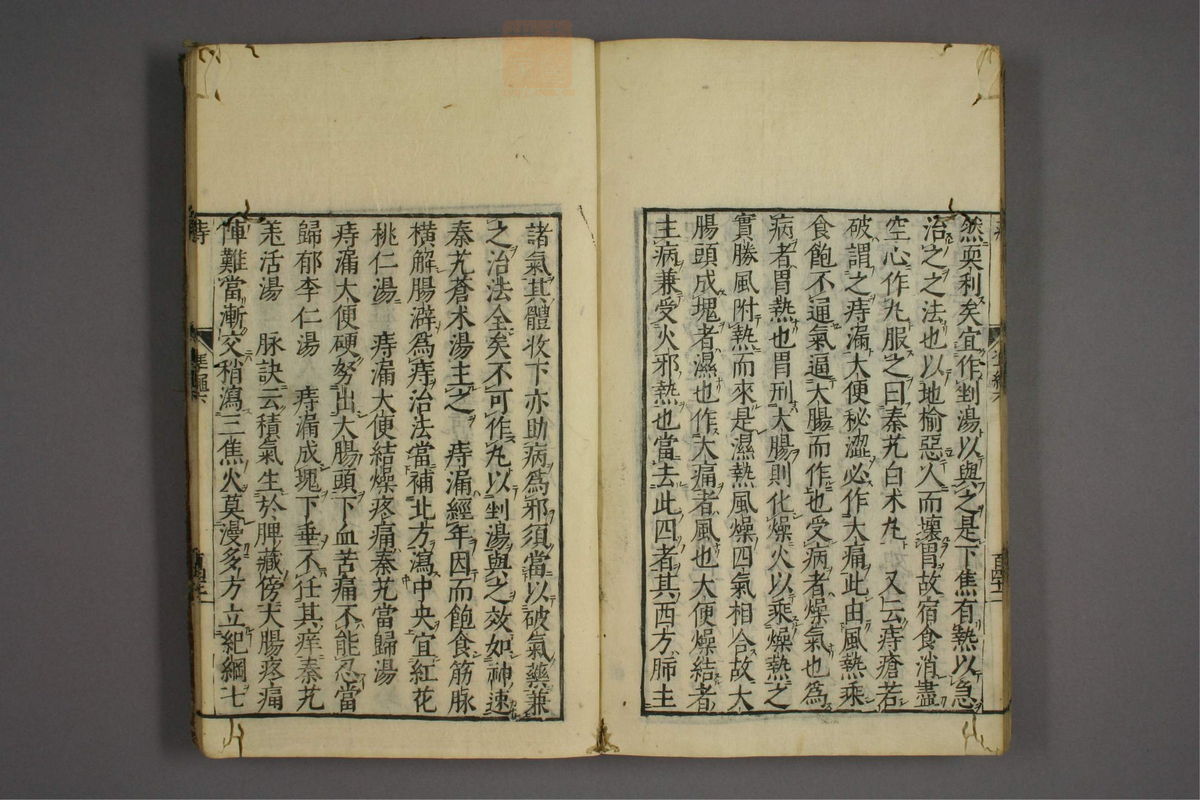 然更利矣宜作剉湯以與之是下焦有熱以急
治之之法也以地榆惡人而壞胃故宿食消盡
空心作丸服之曰秦艽白术丸　又云痔瘡若
破謂之痔漏大便秘澀必作大痛此由風熱乘
食飽不通氣逼大腸而作也受病者燥氣也爲
病者胃熱也胃刑大腸則化燥火以乘燥熱之
實勝風附熱而來是濕熱風燥四氣相合故大
腸頭成塊者濕也作大痛者風也大便燥結者
主病兼受火邪熱也當去此四者其西方肺主
諸氣其體收下亦助病爲邪須當以破氣藥兼
之治法全矣不可作丸以剉湯與之效如神速
秦艽蒼术湯主之　痔漏經年因而飽食筋脉
橫解腸澼爲痔治法當補北方瀉中央宜紅花
桃仁湯　痔漏大便結燥疼痛秦艽當歸湯
痔漏大便硬努出大腸頭下血苦痛不能忍當
歸郁李仁湯　痔漏成塊下垂不任其痒秦艽
羌活湯　脉訣云積氣生於脾藏傍大腸疼痛
陣難當漸交稍瀉三焦火莫漫多方立紀綱七